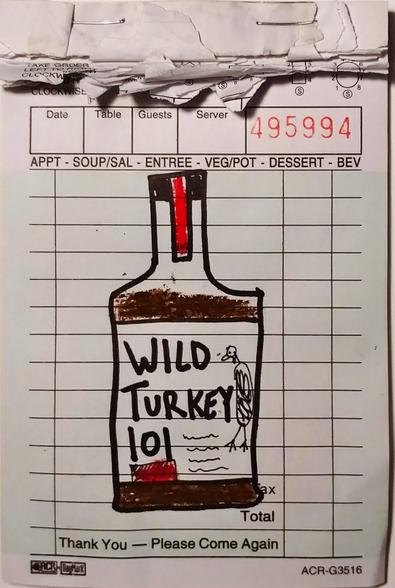 TAKE ORDER
LEFT TO RIGHT
CLOCKWISE
CLOCKWISE
Date Table Guests Server 495994
APPT - SOUP/SAL - ENTREE - VEG/POT - DESSERT - BEV
WILD
TURKEY
101
Tax
Total
Thank You — Please Come Again
ACR DayMark ACR-G3516